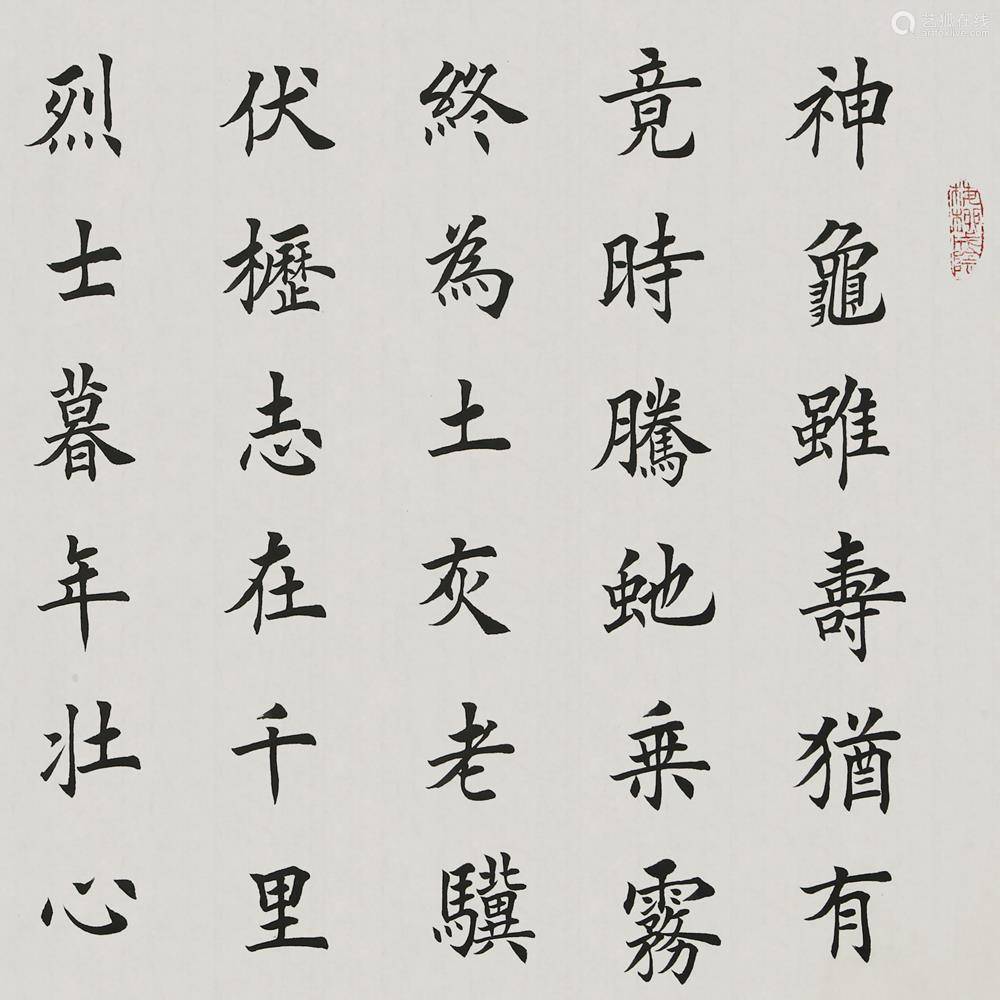 神龜雖壽猶有
竟時騰虵乗霧
終為土灰老驥
伏櫪志在千里
烈士暮年壯心
艺狐在线
artfoxlive.com